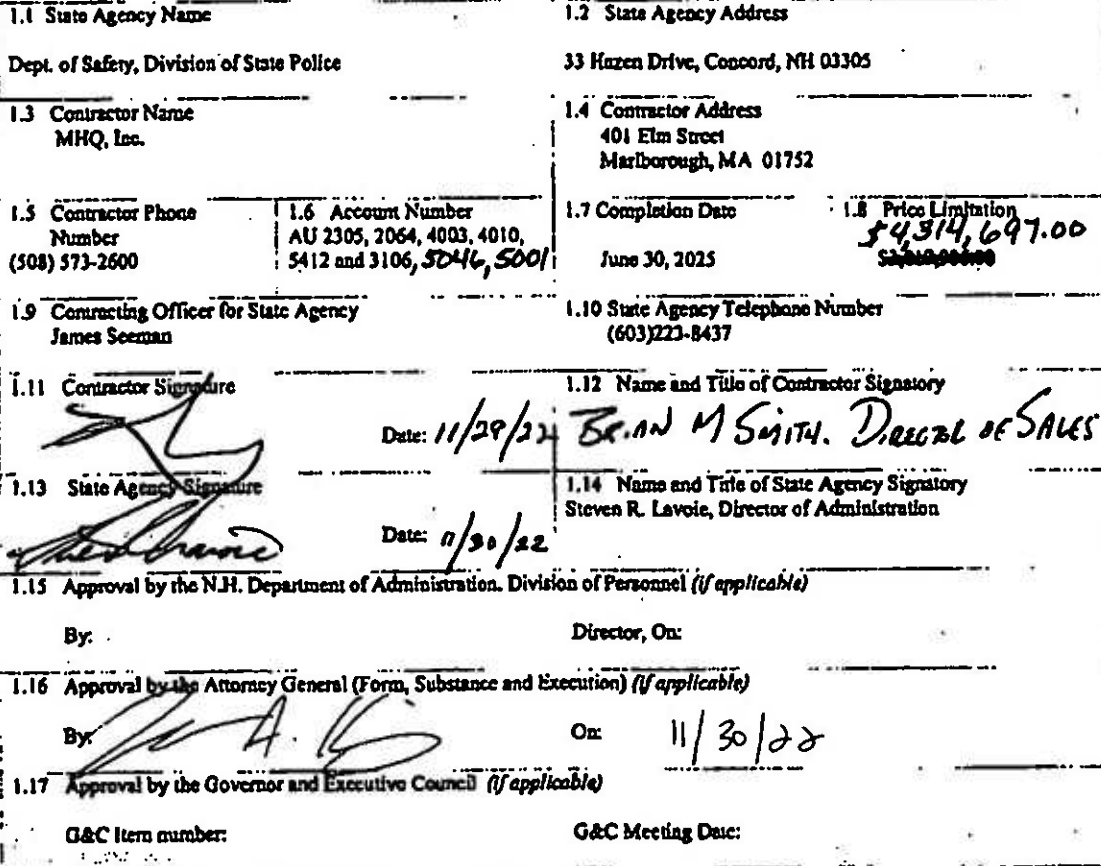 1.1 State Agency Name
1.2 State Agency Address
Dept. of Safety, Division of State Police
33 Hazen Drive, Concord, NH 03305
1.3 Contractor Name
MHQ, Inc.
1.4 Contractor Address
401 Elm Street
Marlborough, MA 01752
1.5 Contractor Phone
Number
(508) 573-2600
1.6 Account Number
AU 2305, 2064, 4003, 4010,
5412 and 3106, 5046, 5001
1.7 Completion Date
June 30, 2025
1.8 Price Limitation
$4,314,697.00
1.9 Contracting Officer for State Agency
James Seeman
1.10 State Agency Telephone Number
(603)223-8437
1.11 Contractor Signature
Date: 11/29/22
1.12 Name and Title of Contractor Signatory
Brian M Smith. Director of Sales
1.13 State Agency Signature
Date: 11/30/22
1.14 Name and Title of State Agency Signatory
Steven R. Lavoie, Director of Administration
1.15 Approval by the N.H. Department of Administration. Division of Personnel (if applicable)
By:
Director, On:
1.16 Approval by the Attorney General (Form, Substance and Execution) (if applicable)
By:
On: 11/30/22
1.17 Approval by the Governor and Executive Council (if applicable)
G&C Item number:
G&C Meeting Date: